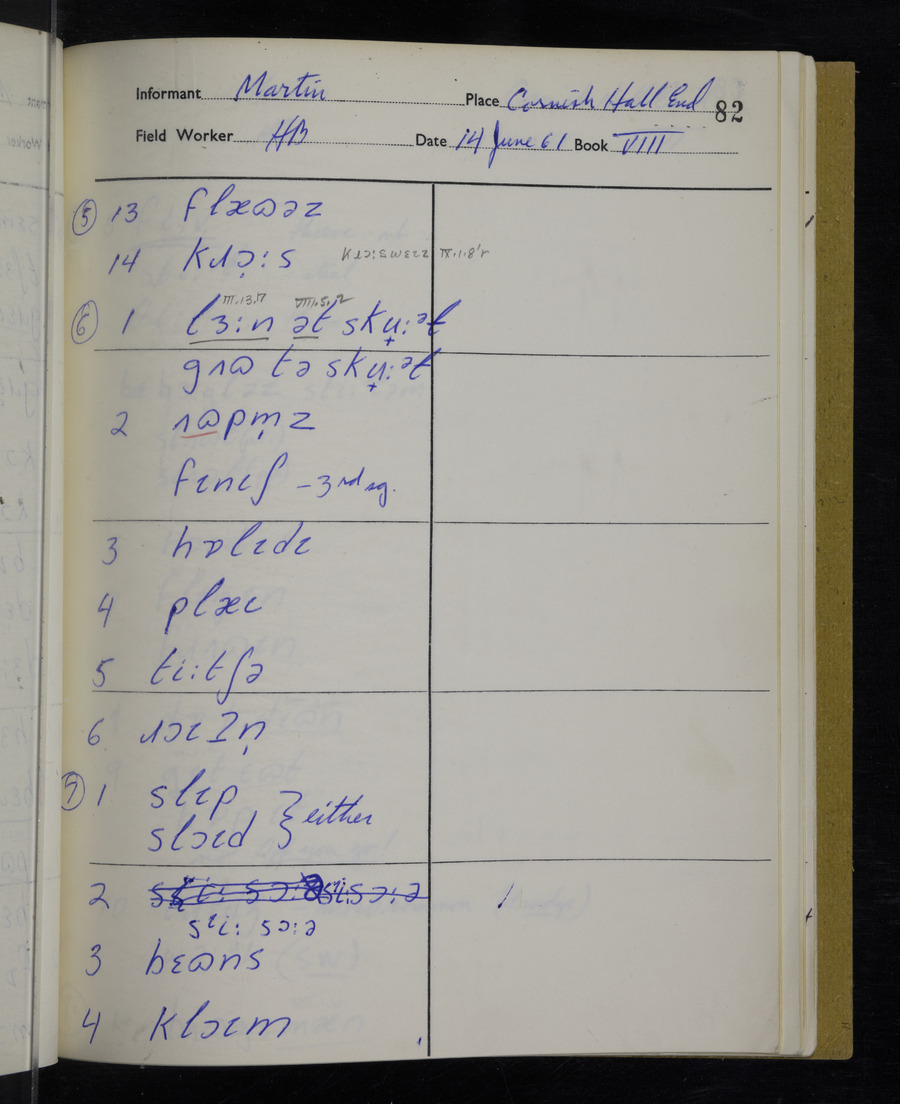 Informant Martin Place Cornish Hall End 82
Field Worker HB Date 14 June 61 Book VIII
⑤ 13 flæɷəz
14 kɹɔ̣:s
⑥ 1 lɜ:n ət skʉ̟:ᵊt III.13.17 VIII.5.2
gɹɷ tə skʉ̟:ət
2 ɹɷpm̩z
fɪnɪʃ – 3rd sg.
3 hɒlɪdɪ
4 plæɪ
5 tɪi:tʃə
6 ɹɔɪʒn̩
⑦ 1 slɪp } either
slɔɪd
2
sᶦi: sɔ:ə
3 bɛɷns
4 klɔɪm